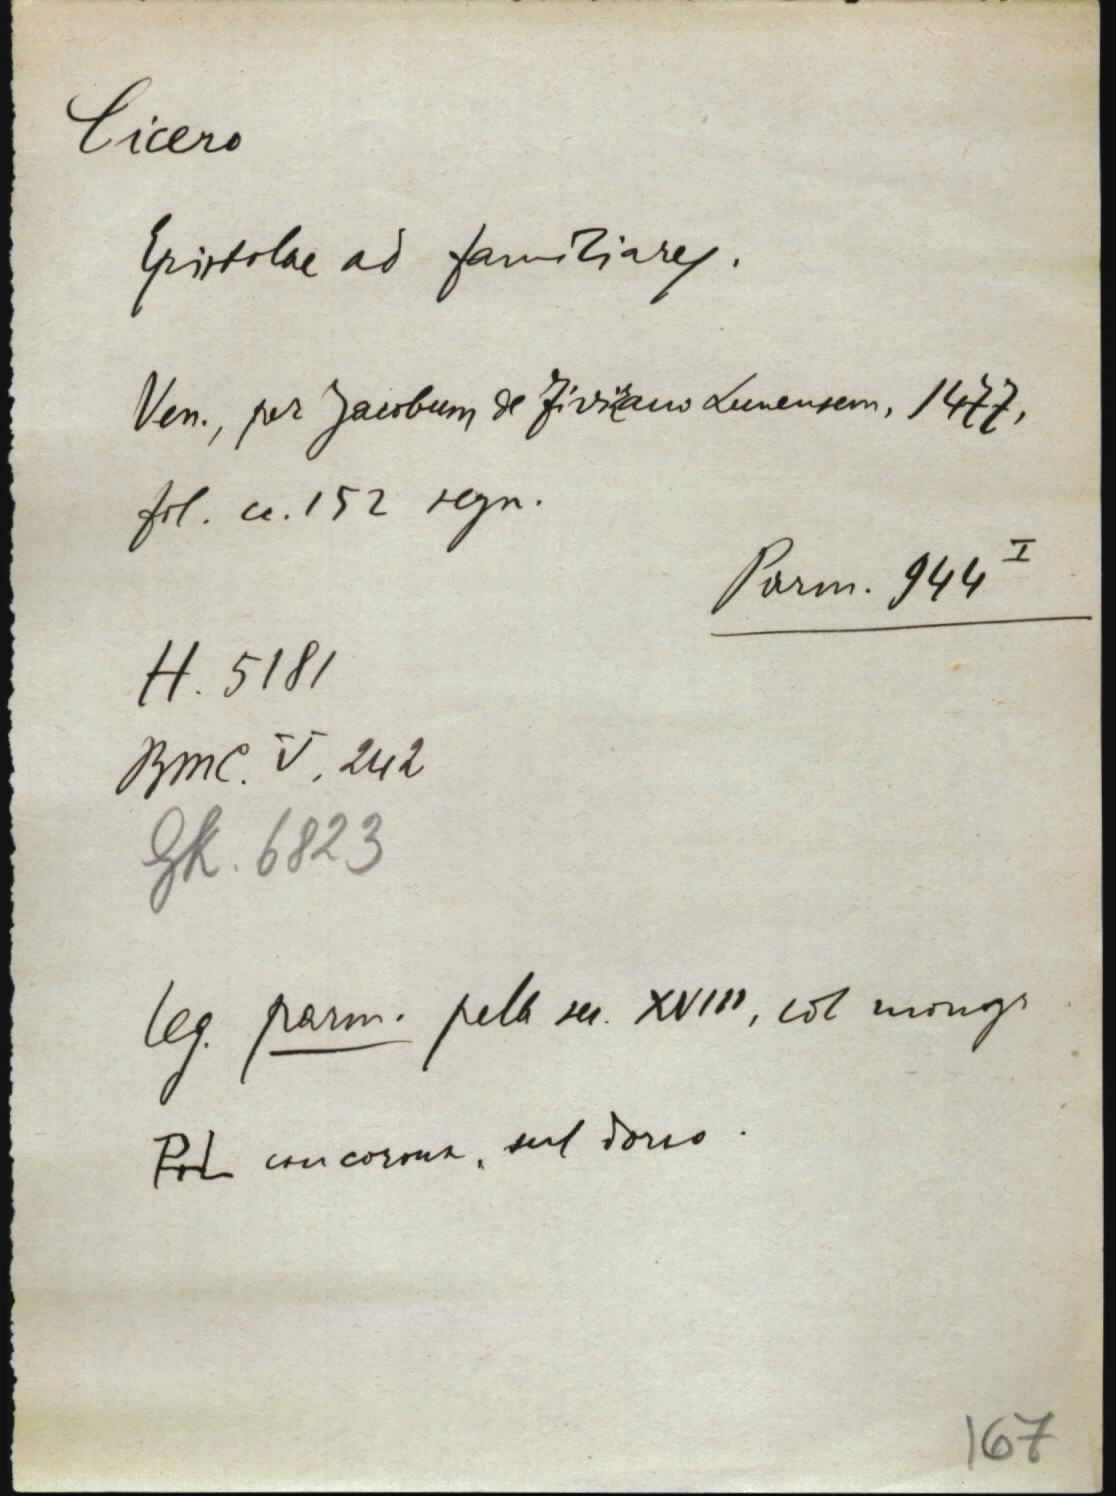 Cicero
Epistolae ad familiares.
Ven., per Jacobum de Fivizano Lunensem, 1477,
fol. cc. 152 segn.
Parm. 944 I
H. 5181
BMC. V, 242
Gk. 6823
Leg. parm. pelle sec. XVIII, col monogr.
PoL con corona, sul dorso.
167